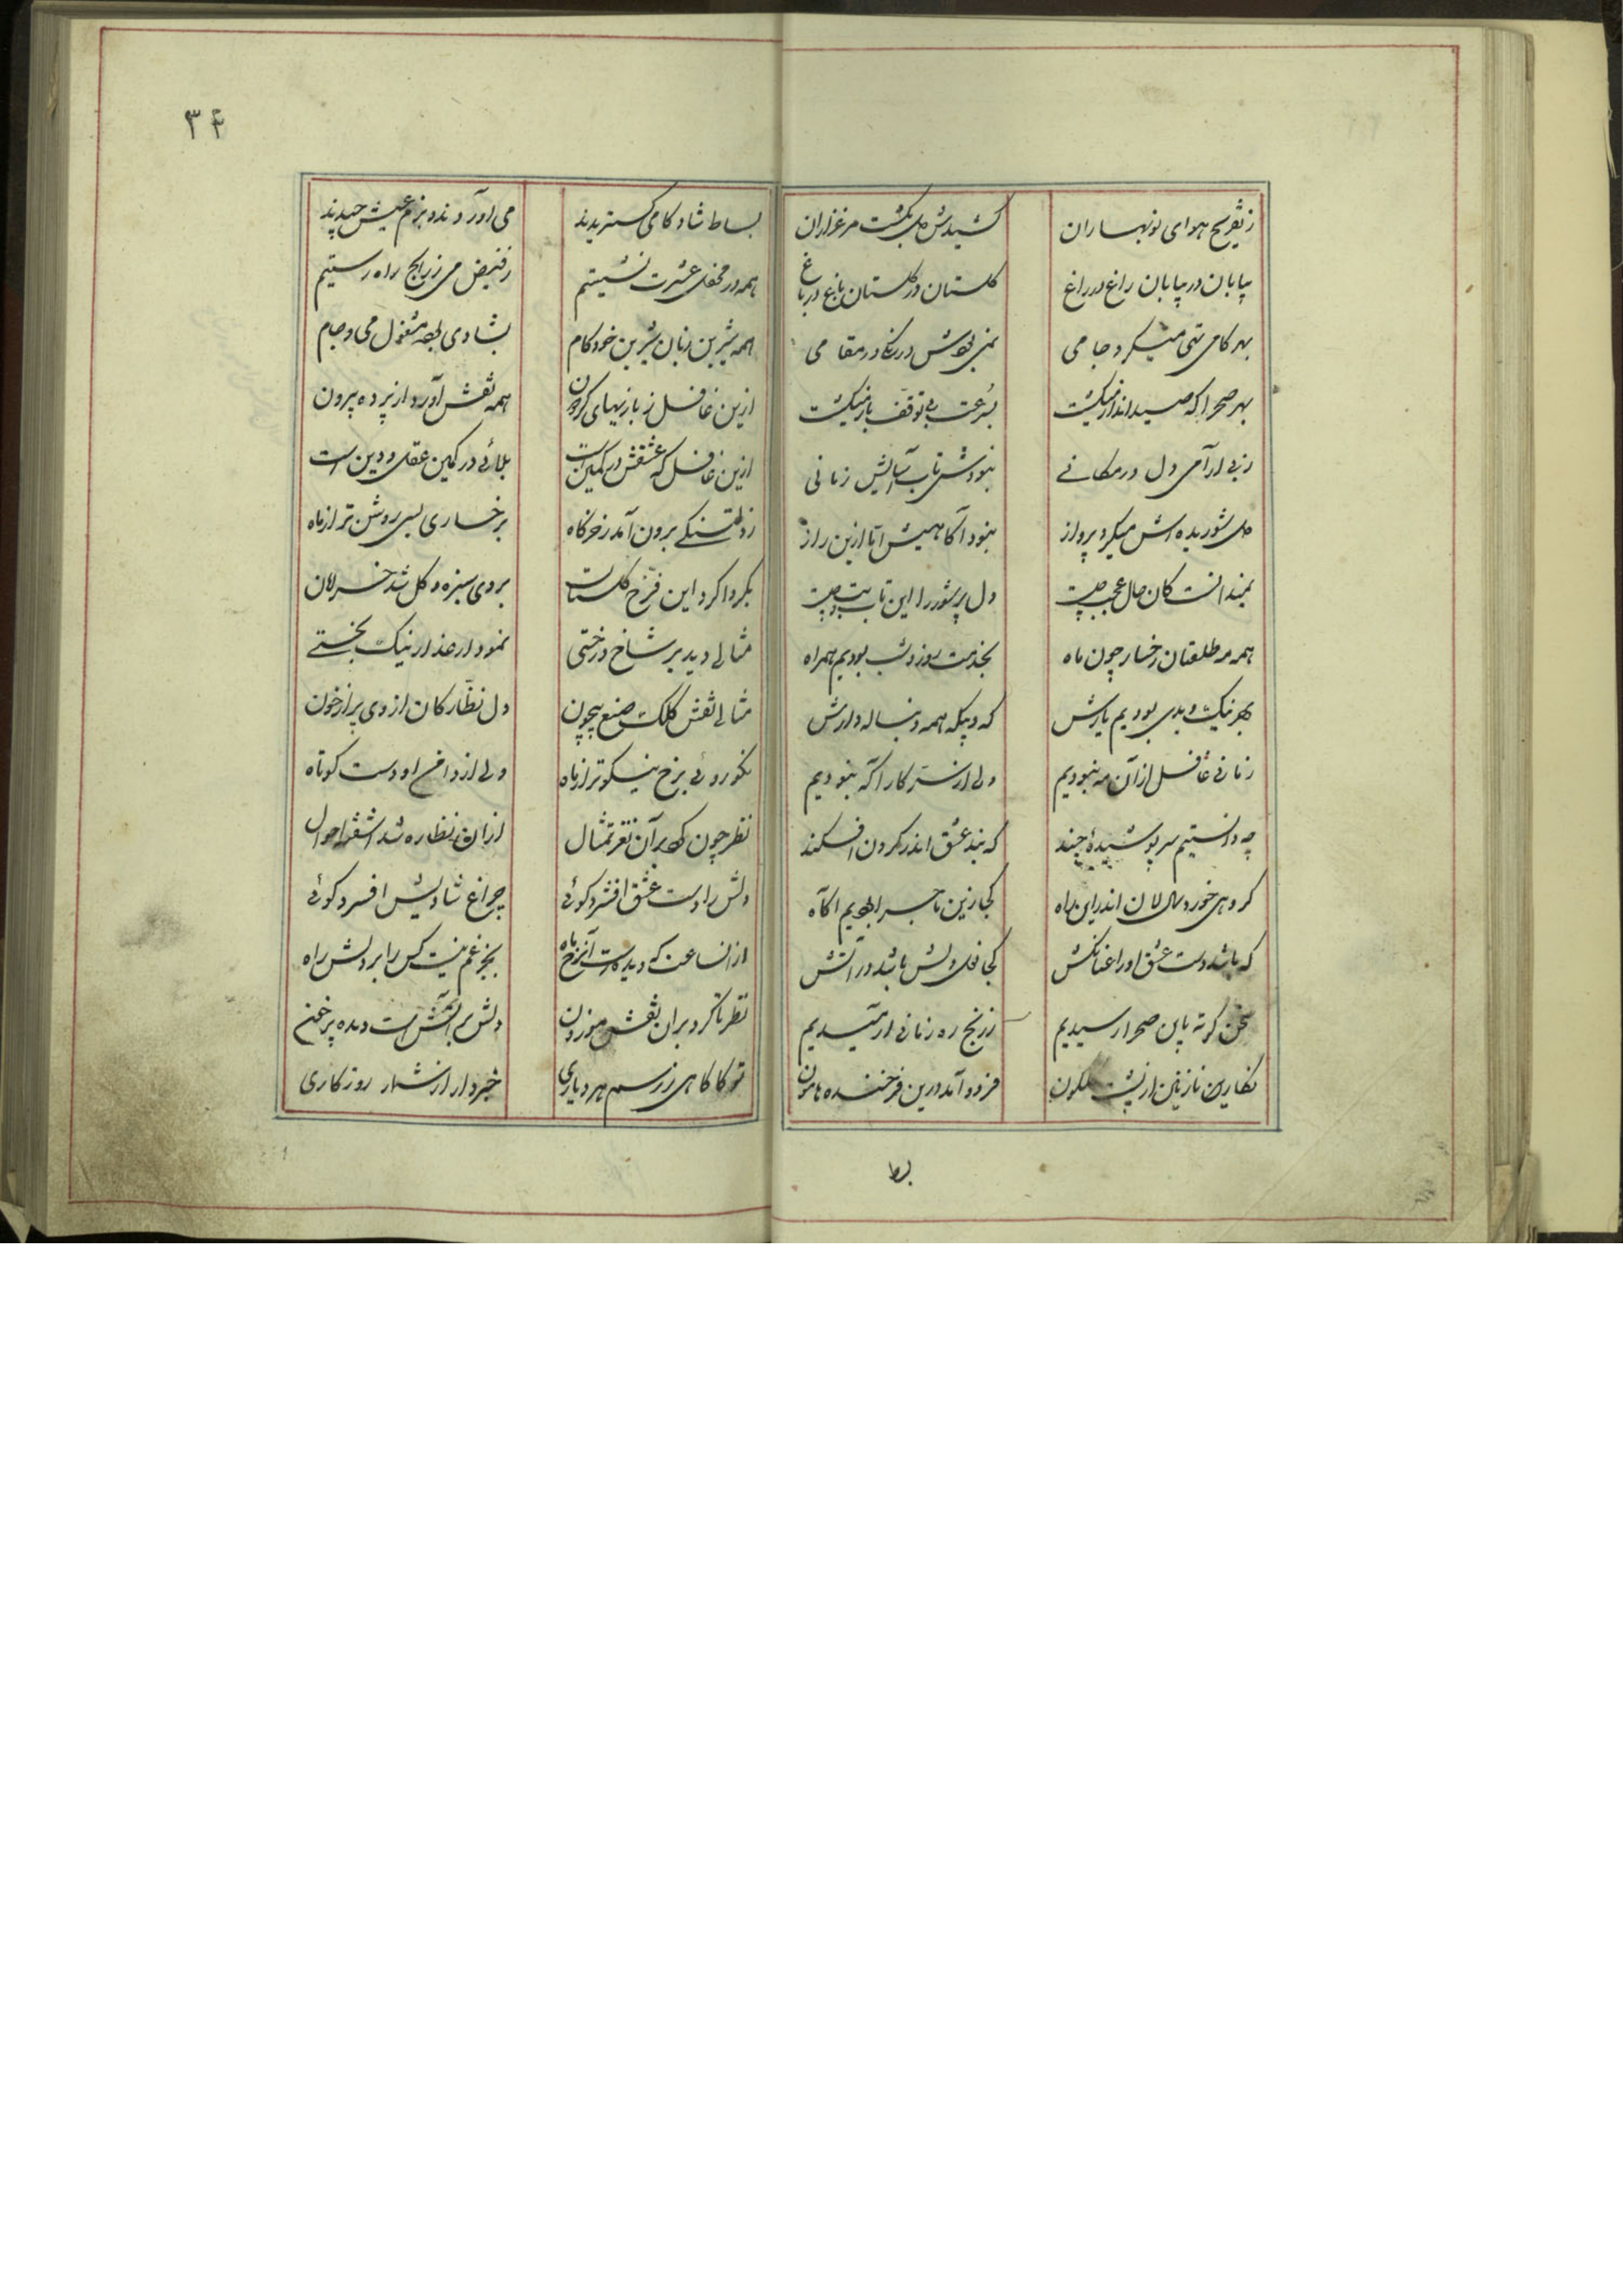 ۳۴
ز تفریح هوای نوبهاران کشیدش دل بگشت مرغزاران
بیابان در بیابان راغ در راغ گلستان در گلستان باغ در باغ
بهر کامی تهی میکرد جامی نمی بودش درنگ در مقامی
بهر صحرا که صید انداز میگشت بسرعت بی توقف باز میگشت
ز بی ارامی دل در مکانی نبودش تاب آسایش زمانی
دل شوریده اش میکرد پرواز نبود آگاهیش اما ازین راز
نمیدانست کان حال عجب چیست دل پرشور را این تاب و تب چیست
همه مه طلعتان رخسار چون ماه بخدمت روز و شب بودیم همراه
بهر نیک و بدی بودیم یارش که و بیگه همه دنباله دارش
زمانی غافل از آن مه نبودیم ولی از سر کار آگه نبودیم
چه دانستیم سر پوشیدهٔ چند که بند عشق اندر گردن افکند
گروهی خورد سالان اندر این راه کجا زین ماجرا بودیم آگاه
که باشد دست عشق او را عنانکش کجا دل باشدش در آتش
سخن کوته باین صحرا رسیدیم ز رنج ره زمانی ارمیدیم
نگارین نازنین از پشت گلگون فرود آمد درین فرخنده هامون
بط
بساط شادکامی گستریدند می اوردند و بزم عیش چیدند
همه در محفل عشرت نشستیم ز فیض می ز رنج راه رستیم
همه شیرین زبان شیرین خودکام بشادی جمله مشغول می و جام
ازین غافل ز بازیهای گردون همه نقش آورد از پرده بیرون
ازین غافل که عشقش در کمین است بلائی در کمین عقل و دین است
ز دلتنگی برون آمد ز خرگاه برخساری بسی روشن تر از ماه
بگردا گرد این فرخ گلستان بروی سبزه و گل شد خرامان
مثالی دید بر شاخ درختی نمودار عذار نیک بختی
مثالی نقش کلک صنع بیچون دل نظارگان از وی پر از خون
نکوروئی برخ نیکوتر از ماه ولی از دامن او دست کوتاه
نظر چون کرد بر آن نغز تمثال از ان نظاره شد اشفته احوال
دلش را دست عشق افشرد گوئی چراغ شادیش افسرد گوئی
از انساعت که دیده است آنرخ ماه بجز غم نیست کس را بر دلش راه
نظر تا کرد بر ان نقش موزون دلش بر آتش است و دیده پر خون
تو کاگاهی ز رسم هر دیاری خبردار از شمار روزگاری